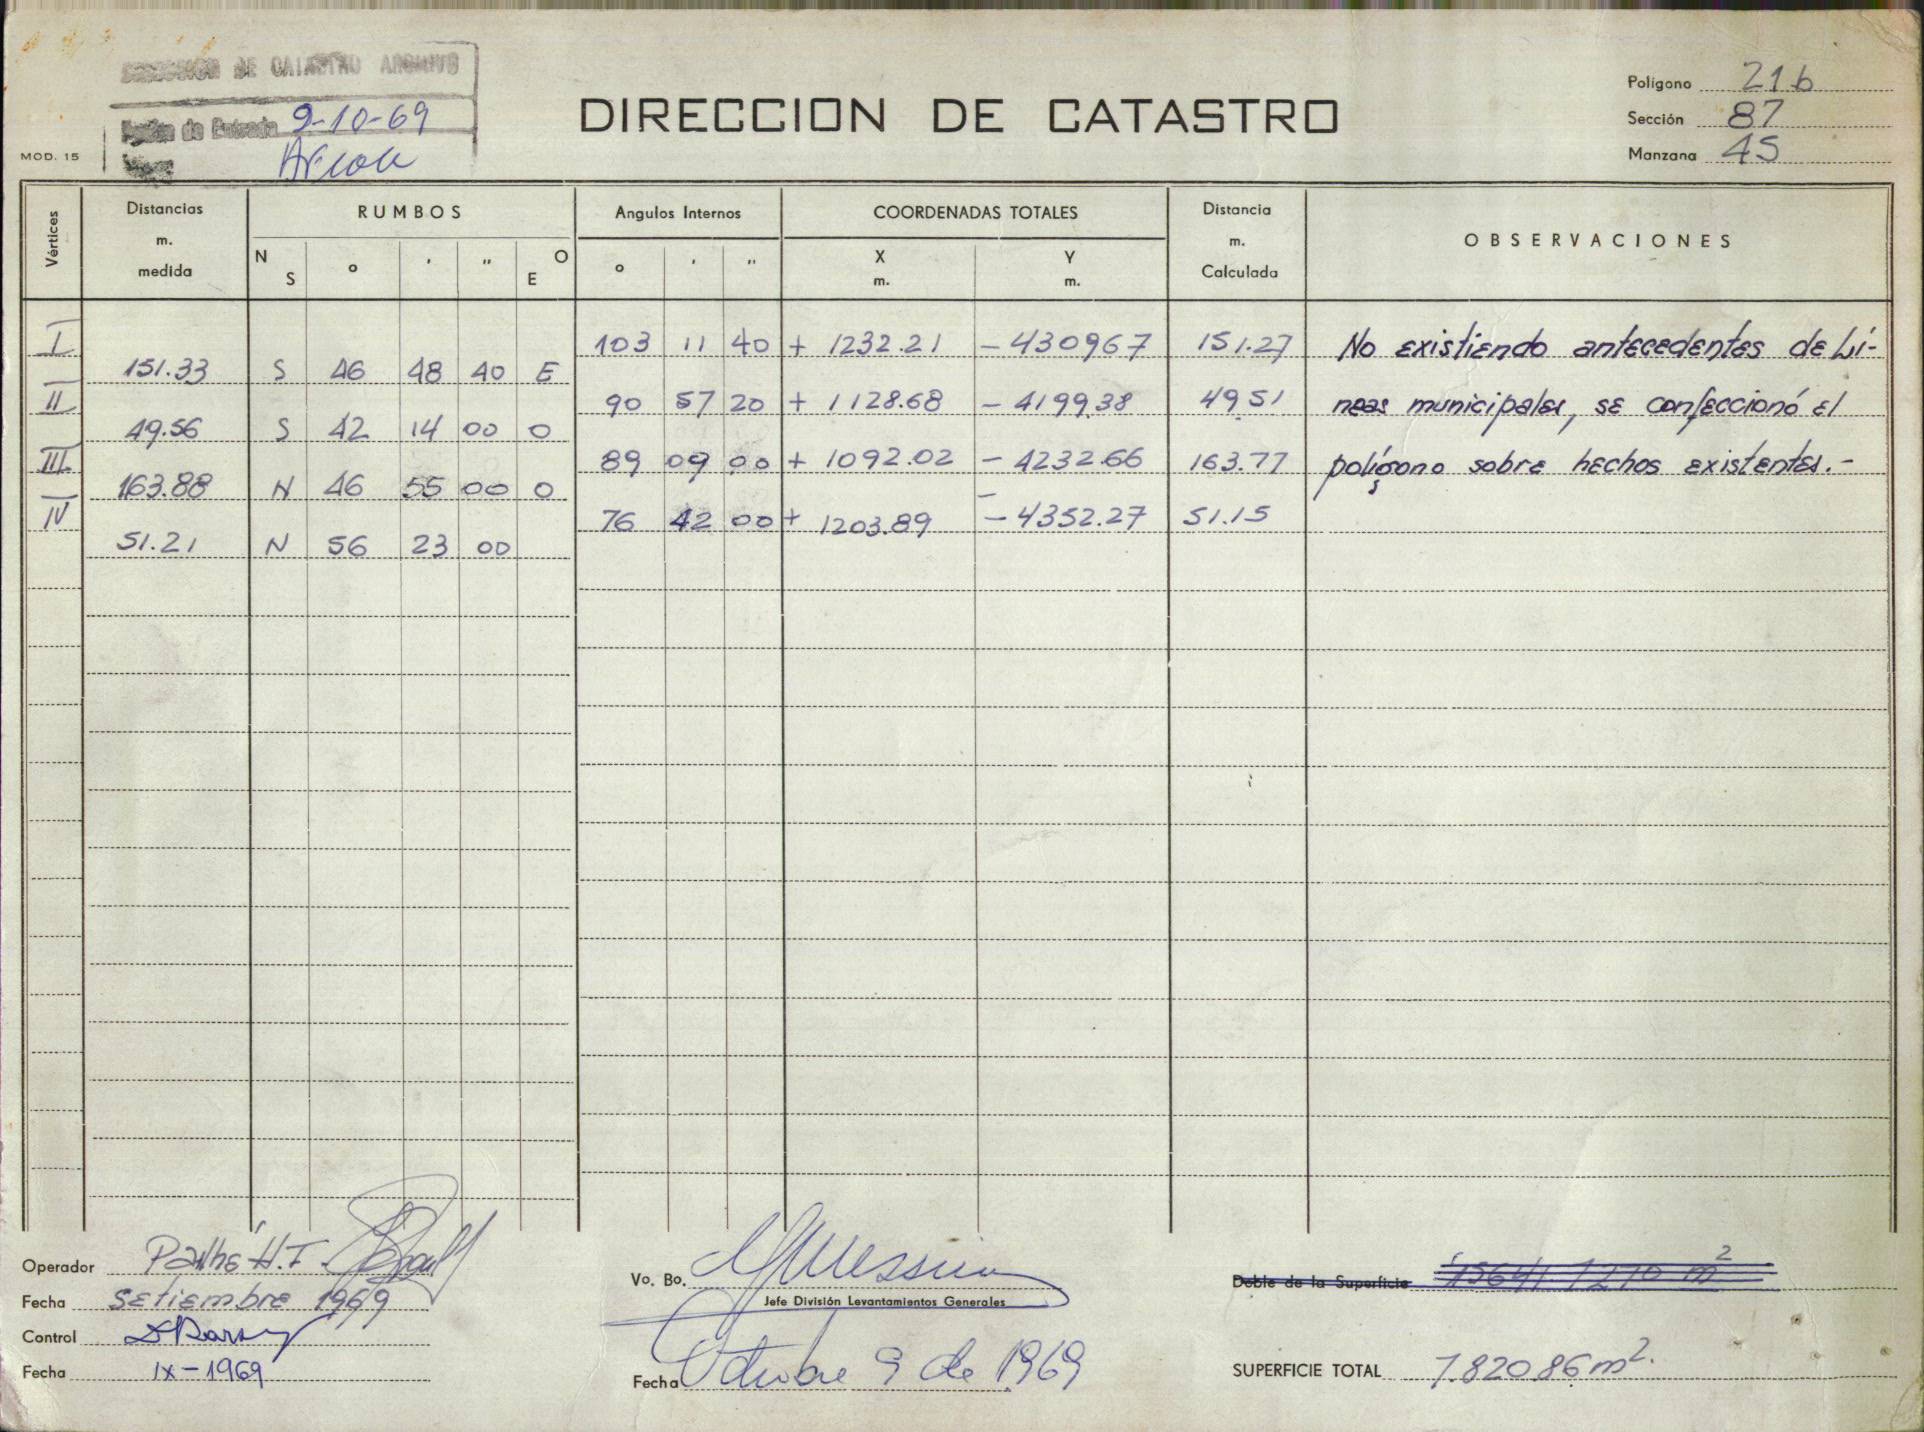 DIRECCION DE CATASTRO ARCHIVO
de Entrada 9-10-69
MOD. 15
DIRECCION DE CATASTRO
Polígono 21b
Sección 87
Manzana 45
Vértices
Distancias m. medida
RUMBOS
N S ° ' " O E
Angulos Internos
° ' "
COORDENADAS TOTALES
X m. Y m.
Distancia m. Calculada
OBSERVACIONES
I 103 11 40 + 1232.21 - 430967 151.27 No existiendo antecedentes de Lí-
151.33 S 46 48 40 E
II 90 57 20 + 1128.68 - 4199.38 49.51 neas municipales, se confeccionó el
49.56 S 42 14 00 O
III 89 09 00 + 1092.02 - 4232.66 163.77 polígono sobre hechos existentes.-
163.88 N 46 55 00 O
IV 76 42 00 + 1203.89 - 4352.27 51.15
51.21 N 56 23 00
Operador H.I.
Fecha setiembre 1969
Control
Fecha IX-1969
Vo. Bo.
Jefe División Levantamientos Generales
Fecha Octubre 9 de 1969
Doble de la Superficie m²
SUPERFICIE TOTAL 7.820.86 m².